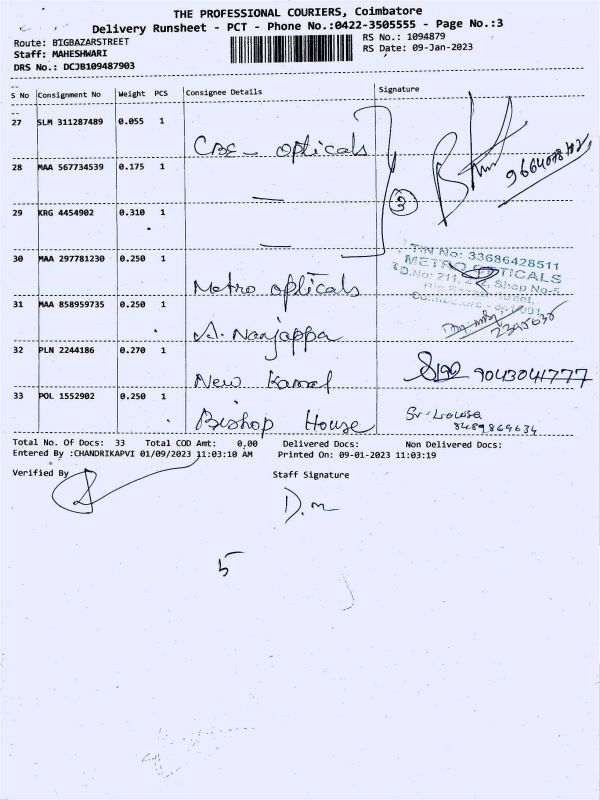 THE PROFESSIONAL COURIERS, Coimbatore
Delivery Runsheet - PCT - Phone No.:0422-3505555 - Page No.:3
Route: BIGBAZARSTREET
RS No.: 1094879
Staff: MAHESHWARI
RS Date: 09-Jan-2023
DRS No.: DCJB109487903
S No Consignment No Weight PCS Consignee Details Signature
27 SLM 311287489 0.055 1 CBE - opticals
28 MAA 567734539 0.175 1 —
29 KRG 4454902 0.310 1 — 3
30 MAA 297781230 0.250 1 Metro opticals
TIN No: 33686428511
METRO OPTICALS
31 MAA 858959735 0.250 1 A. Nanjappa
32 PLN 2244186 0.270 1 New Kamal 9043041777
33 POL 1552902 0.250 1 Bishop House
8489869634
Total No. Of Docs: 33 Total COD Amt: 0,00 Delivered Docs: Non Delivered Docs:
Entered By :CHANDRIKAPVI 01/09/2023 11:03:10 AM Printed On: 09-01-2023 11:03:19
Verified By
Staff Signature
D.m
5